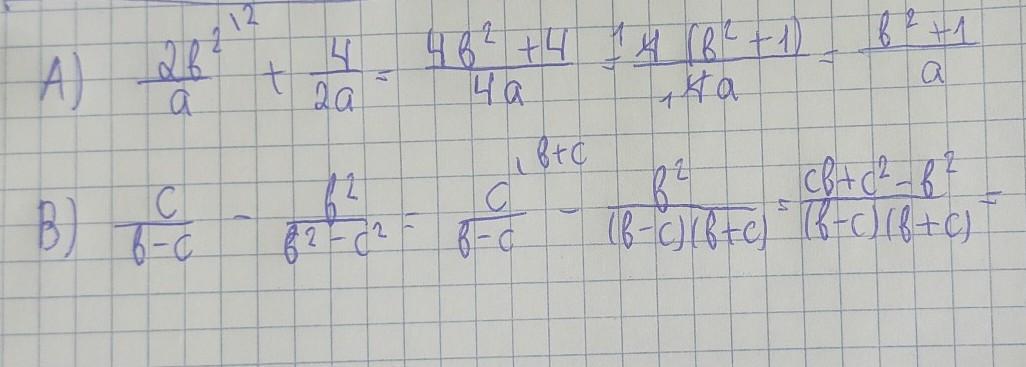 A) 2b²\2/a + 4/2a = 4b²+4/4a = ¹4(b²+1)/₁4a = b²+1/a
B) c/b-c - b²/b²-c² = c\b+c/b-c - b²/(b-c)(b+c) = cb+c²-b²/(b-c)(b+c) =